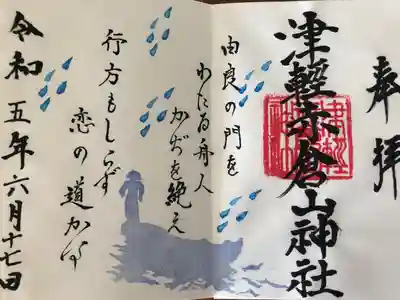 奉拝
津軽赤倉山神社
由良の門を
わたる舟人
かぢを絶え
行方もしらず
恋の道かな
令和五年六月十七日